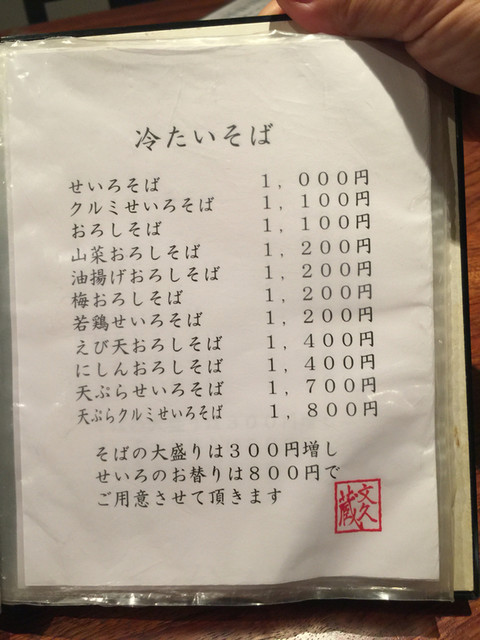 冷たいそば
せいろそば １，０００円
クルミせいろそば １，１００円
おろしそば １，１００円
山菜おろしそば １，２００円
油揚げおろしそば １，２００円
梅おろしそば １，２００円
若鶏せいろそば １，２００円
えび天おろしそば １，４００円
にしんおろしそば １，４００円
天ぷらせいろそば １，７００円
天ぷらクルミせいろそば １，８００円
そばの大盛りは３００円増し
せいろのお替りは８００円で
ご用意させて頂きます
文久
蔵